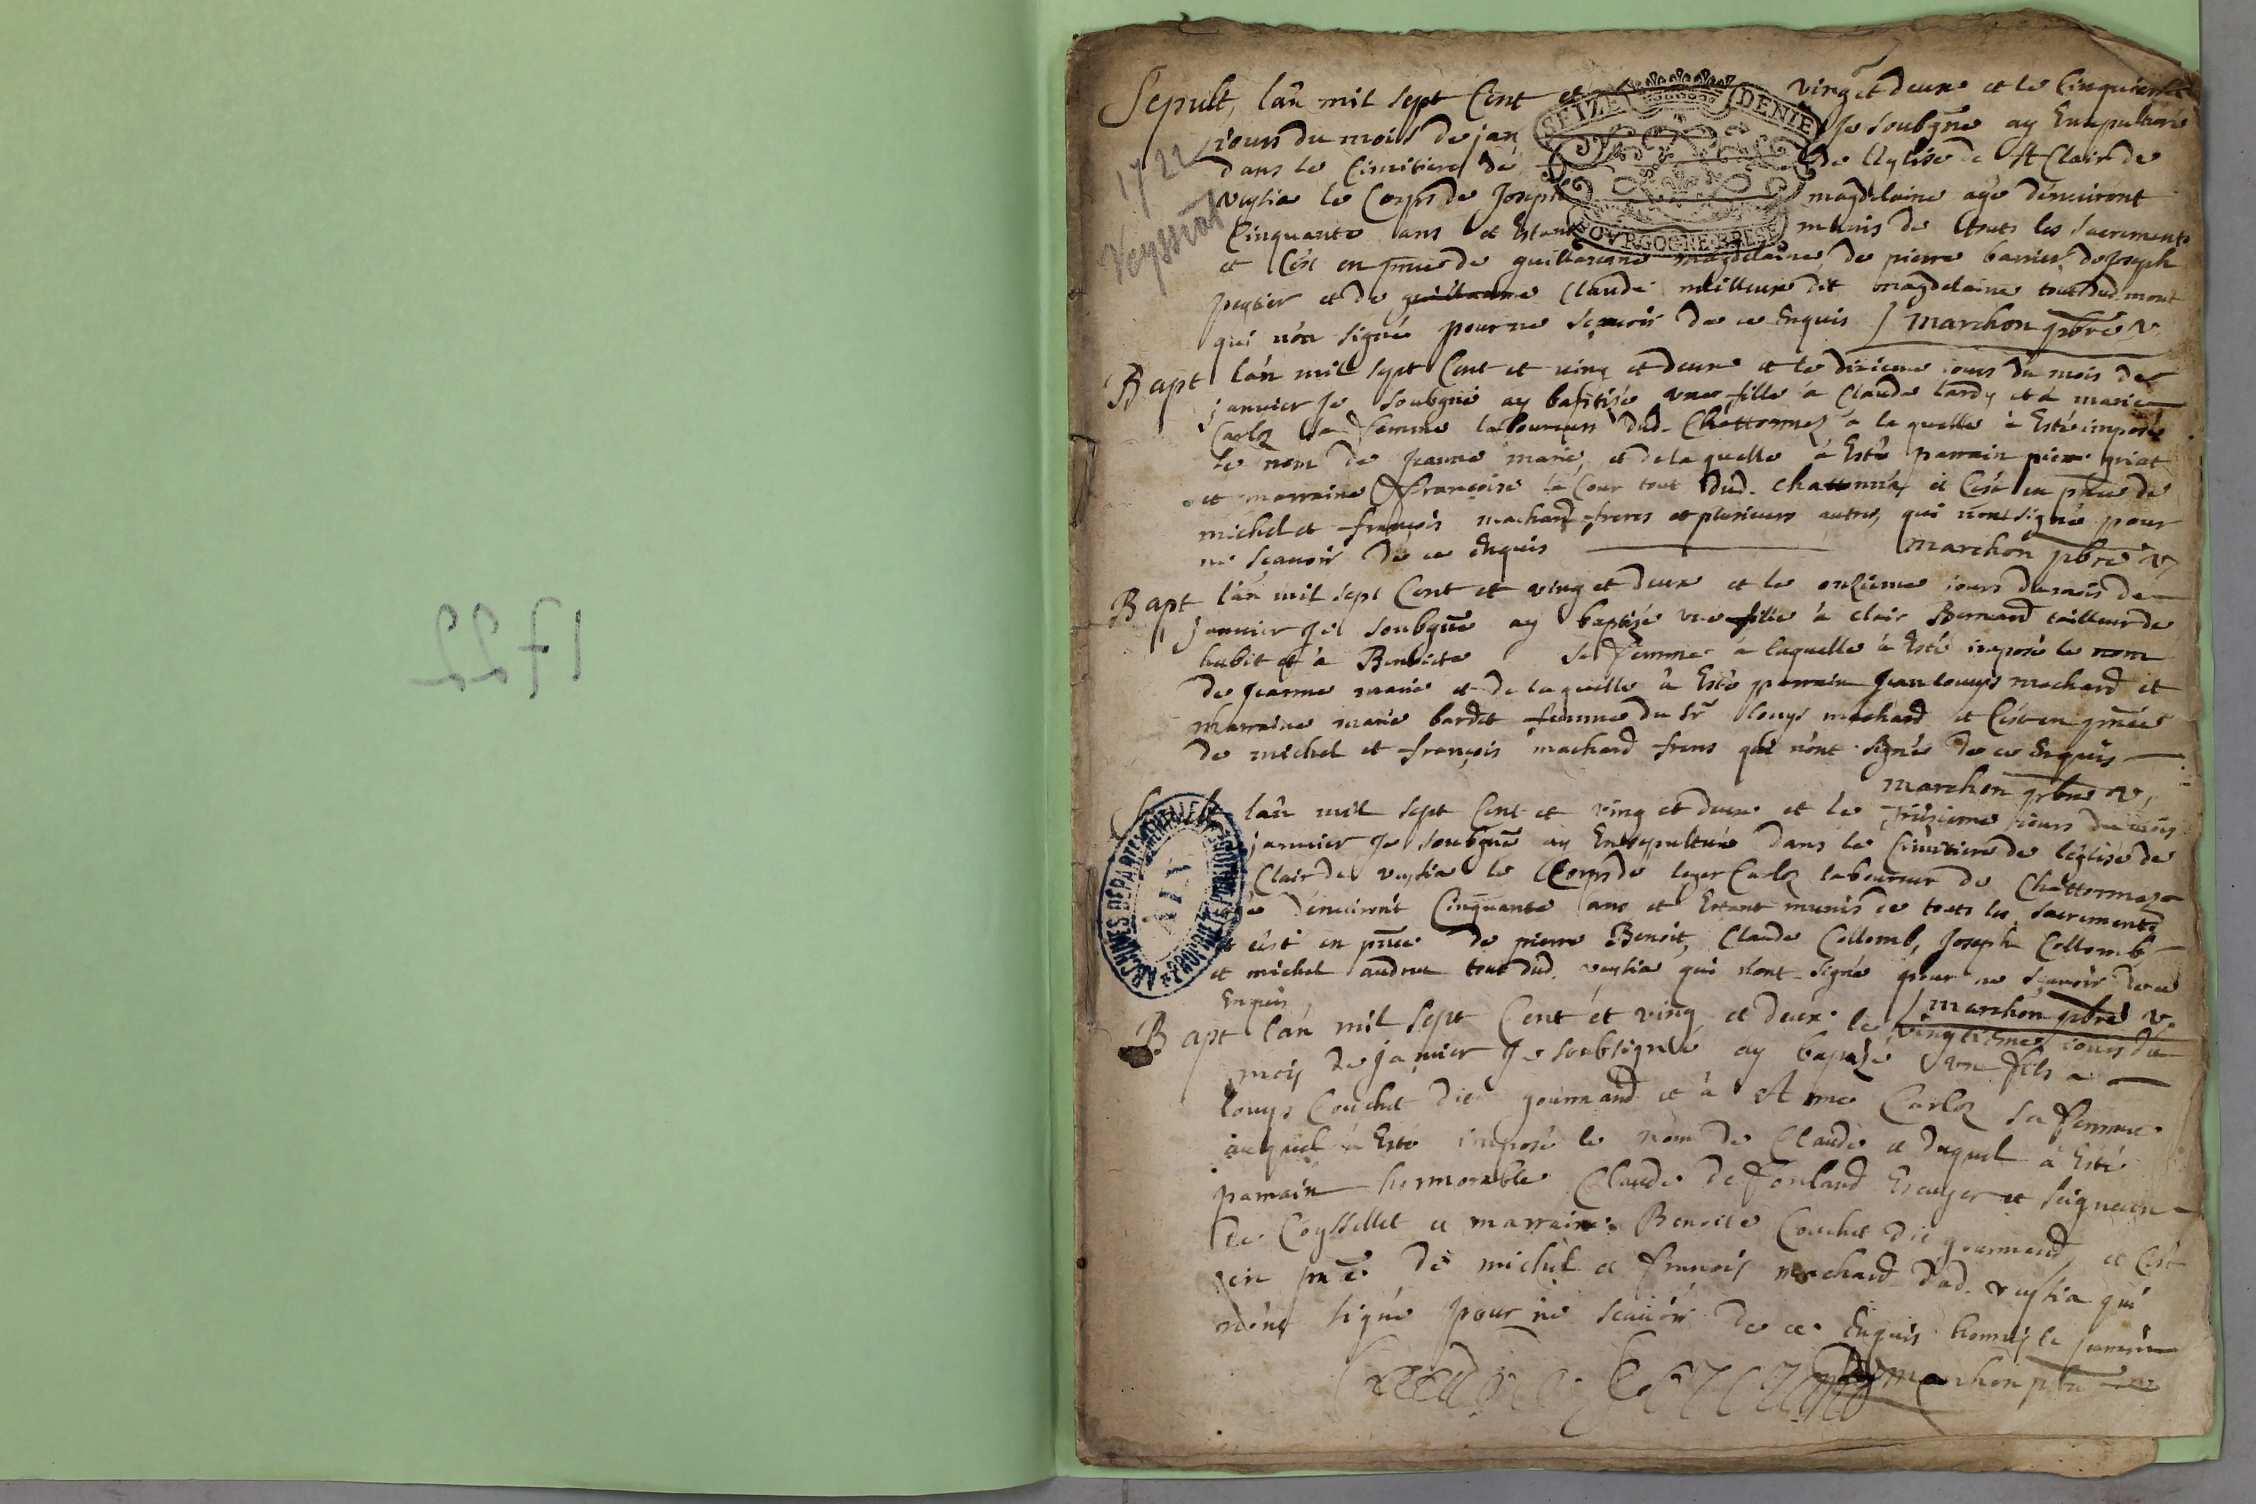 1722
SEIZE DENIE
BOVRGOGNE BRESSE
1722
Veyssiat
Sepult, lan mil sept Cent et ving et deux et le Cinquiesme
iours du mois de jan Je soubgne ay Ensepulturé
dans le Cimitiere de de Leglise de st Clair de
veysia le Corps de Joseph magdelaine agé denuiront
Cinquante ans et Estant munis de touts les sacrements
et Cést en pnce de guillaume magdelaine de pierre de Joseph
et de guillaume Claude dit magdelaine tout dud. mont
qui nón signé pour ne sçavoir de ce Enquis marchon pbre v.
Bapt lán mil sept Cent et ving et deux et le dixieme iours du mois de
janvier Je soubgné ay baptisé une fille á Claude tardy et á marie
Carloz sa femme laboureurs dud. Chattonnaz a la quelle á Esté imposé
le nom de jeanne marie, et de la quelle á Esté parrain pierre
et marraine françoise la Cour tout dud. chattonna et Cést en pnce de
michel et françois machard freres et plusieurs autres, qui nónt signé pour
ne sçavoir de ce Enquis marchon pbre v.
Bapt lán mil sept Cent et ving et deux et le onzieme iours du mois de
janvier je soubgné ay baptizé une fille á clair Bernard tailleur de
habit et á Benoicte sa femme á laquelle á Esté imposé le nom
de jeanne marie et de la quelle á Esté parrain jean louys machard et
Marraine marie bardet femme du sr louys machard et Cést en pnce
de michel et françois machard freres qui nónt signé de ce Enquis
marchon pbre v.
lán mil sept Cent et ving et deux et le iours du mois
janvier Je soubgné ay Ensepulturé dans le Cimitiere de léglise de
Clair de veysia le Corps de leger Carloz laboureur de Chattonnaz
denuiront Cinquante ans et Estant munis de touts les sacrements
et cést en pnce de pierre Benoit, Claude Collomb, Joseph Collomb
et michel tout dud. veysia qui nónt signé pour ne sçavoir de ce
Enquis marchon pbre v.
ARCHIVES DEPARTEMENTALES
AIN
PROPRIETE PUBLIQUE
Bapt lán mil sept Cent et ving et deux le vingtiéme iours du
mois de janvier Je soubsigné ay baptizé un fils a
louys Couchet dit gourmand et á Anne Carloz sa femme
auquel á Esté imposé le nom de Claude et duquel á Esté
parrain honnorable Claude de Escuyer et seigneur
de Coyssellet et marraine Benoite Couchet dit gourmand, et Cést
en pnce de michel et françois machard dud. veysia qui
nónt signé pour ne sçavoir de ce Enquis hormis le parrain
marchon pbre